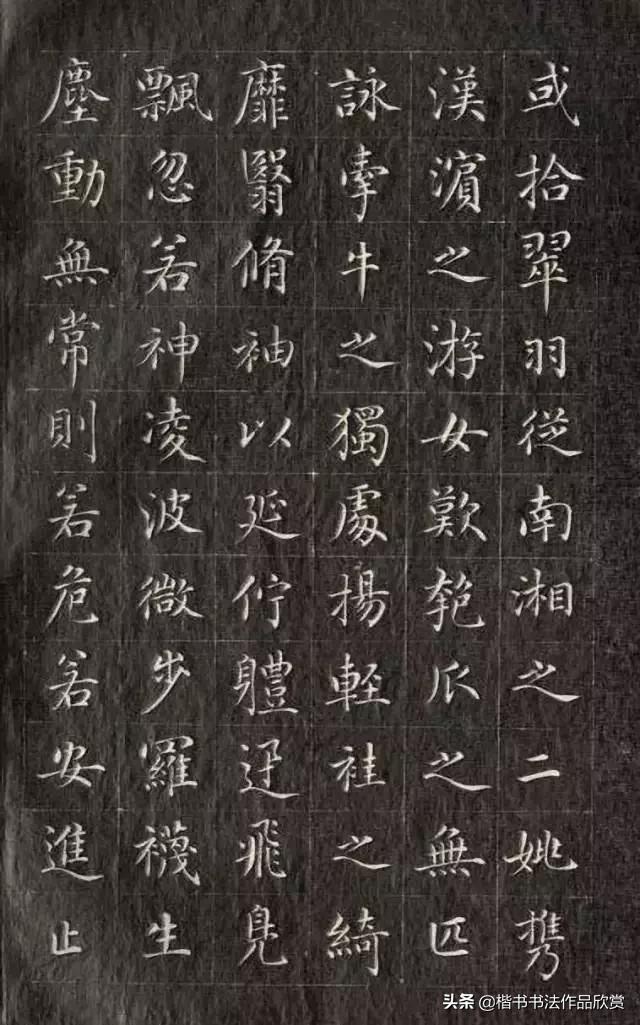 或拾翠羽從南湘之二姚攜
漢濵之游女歎匏瓜之無匹
詠牽牛之獨處揚輕袿之綺
靡翳脩袖以延佇體迅飛鳧
飄忽若神淩波微步羅襪生
塵動無常則若危若安進止
头条 @楷书书法作品欣赏